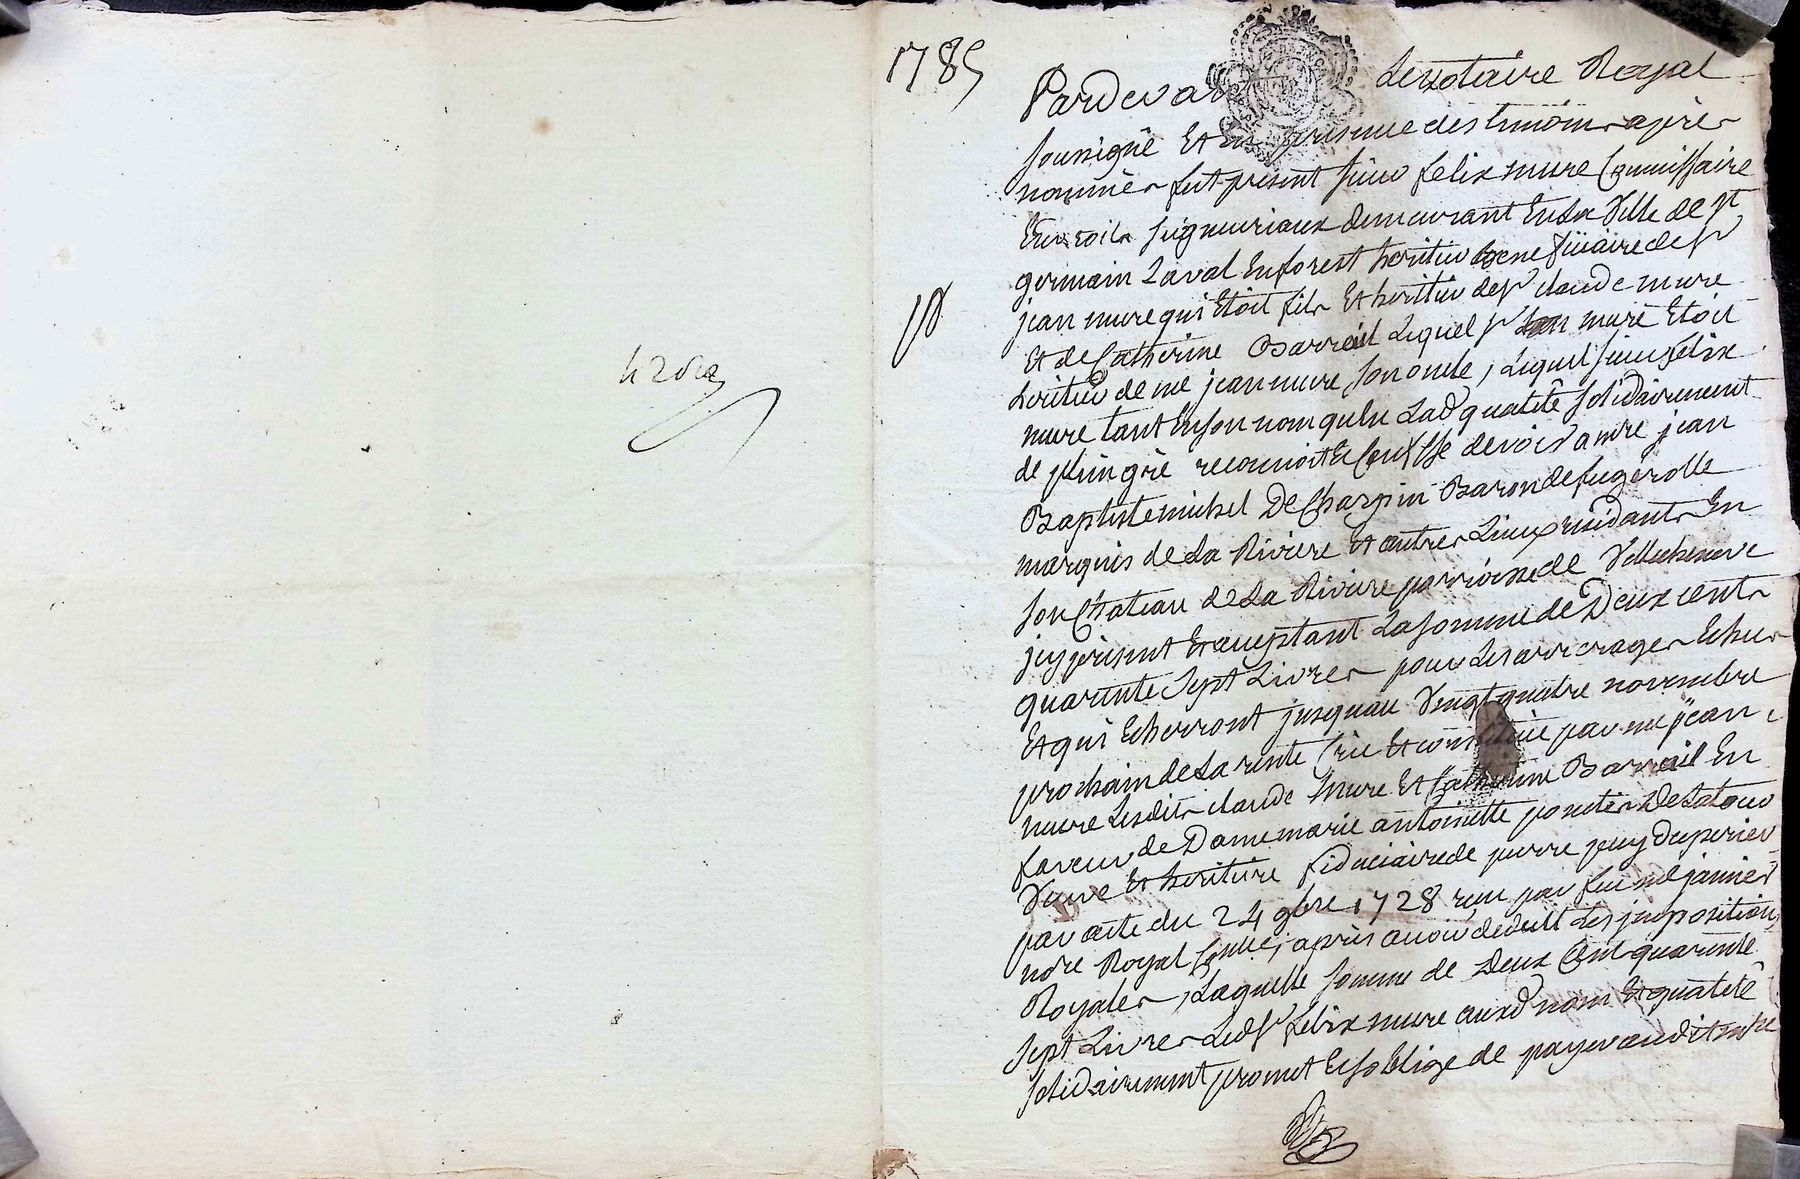 1785
Pardevant Le notaire Royal
soussigné Et En presence des temoins apres
nommés fut present sieur felix mure Commissaire
En droits seigneuriaux demeurant En La Ville de st
germain Laval En forest heritier beneficiaire de sr
jean mure qui Etoit fils Et heritier de sr claude mure
Et de Catherine Barrail Lequel sr jean mure Etoit
heritier de me jean mure son oncle, Lequel sieur felix
mure tant En son nom qu'En Lad qualité solidairement
de plein gré reconnoit Et Confesse devoir a mre jean
Baptiste michel De Charpin Baron de feugerolle
marquis de La Riviere Et autres Lieux residant En
son Chateau de La Riviere parroisse de Villecheneve
jcy present Et acceptant La somme de Deux cents
quarante sept Livres pour Les arrerages Echus
Et qui Echerront jusquau Vingt quatre novembre
prochain de La rente Crée Et constituée par me jean
mure Lesdits claude mure Et Catherine Barrail En
faveur de Dame marie antoinette De Latour
Veuve Et heritiere fiduciaire de pierre puy Duperier
par acte du 24 9bre 1728 reçu par feu me janvier
nore Royal , apres avoir deduit Les jmpositions
Royales, Laquelle somme de Deux Cent quarante
sept Livres Led sr felix mure auxd nom Et qualité
solidairement promet Et s'oblige de payer audit